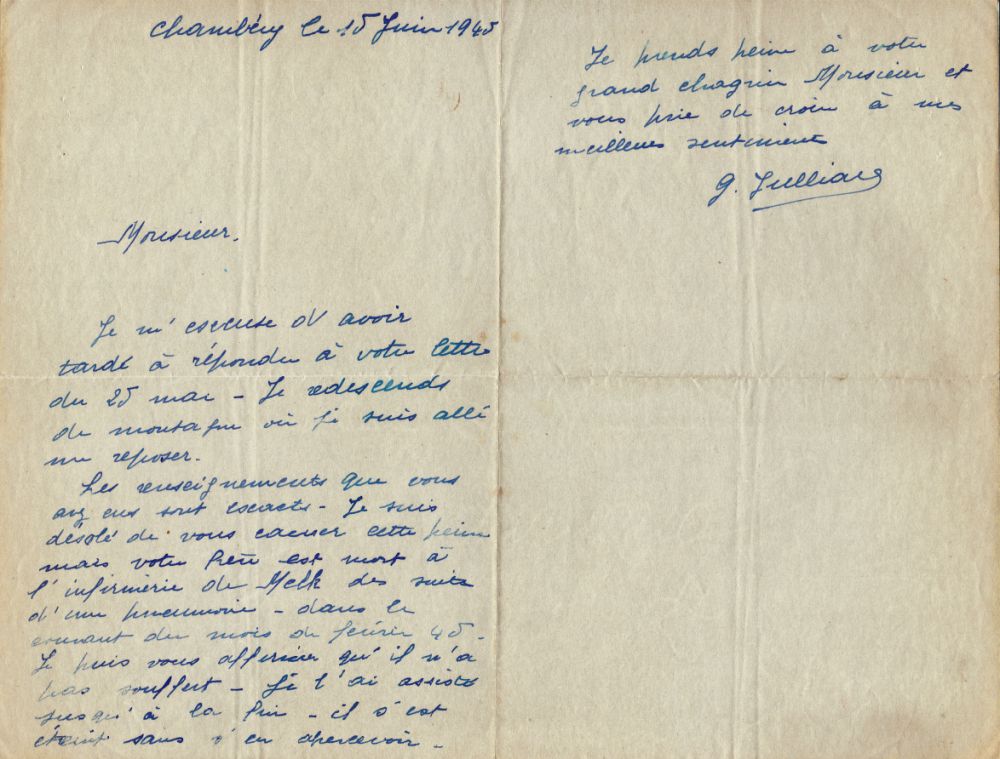 Chambéry le 15 Juin 1945
Monsieur.
Je m'excuse d'avoir
tardé à répondre à votre lettre
du 25 mai - Je redescends
de montagne où je suis allé
me reposer.
Les renseignements que vous
avez eus sont exacts - Je suis
désolé de vous causer cette peine
mais votre frère est mort à
l'infirmerie de Melk des suites
d'une pneumonie - dans le
courant du mois de février 45 -
Je puis vous affirmer qu'il n'a
pas souffert - Je l'ai assisté
jusqu'à la fin - il s'est
éteint sans s'en apercevoir -
Je prends peine à votre
grand chagrin Monsieur et
vous prie de croire à mes
meilleurs sentiments
G. Julliard